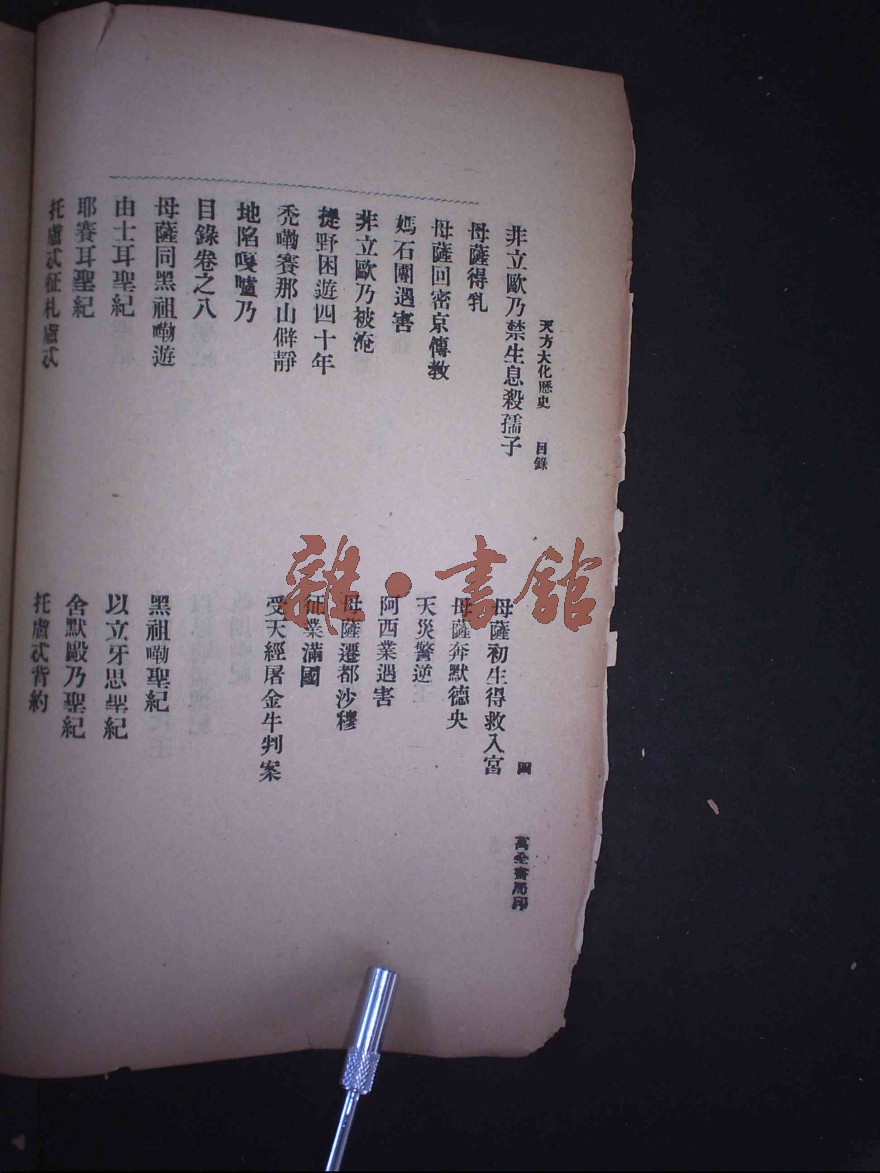 天方大化歷史　目錄　四　萬全書局印
非立歐乃禁生息殺孺子　母薩初生得救入宮
母薩得乳　母薩奔默德央
母薩回密京傳教　天災警逆
媽石團遇害　阿西業遇害
非立歐乃被淹　母薩遷都沙穆
提野困遊四十年　征業滿國
禿嘞賽那山僻靜　受天經屠金牛判案
地陷嘎嚧乃
目錄卷之八
母薩同黑祖嘞遊　黑祖嘞聖紀
由士耳聖紀　以立牙思聖紀
耶賽耳聖紀　舍默殿乃聖紀
托盧忒征札盧忒　托盧忒背約
雜·書館